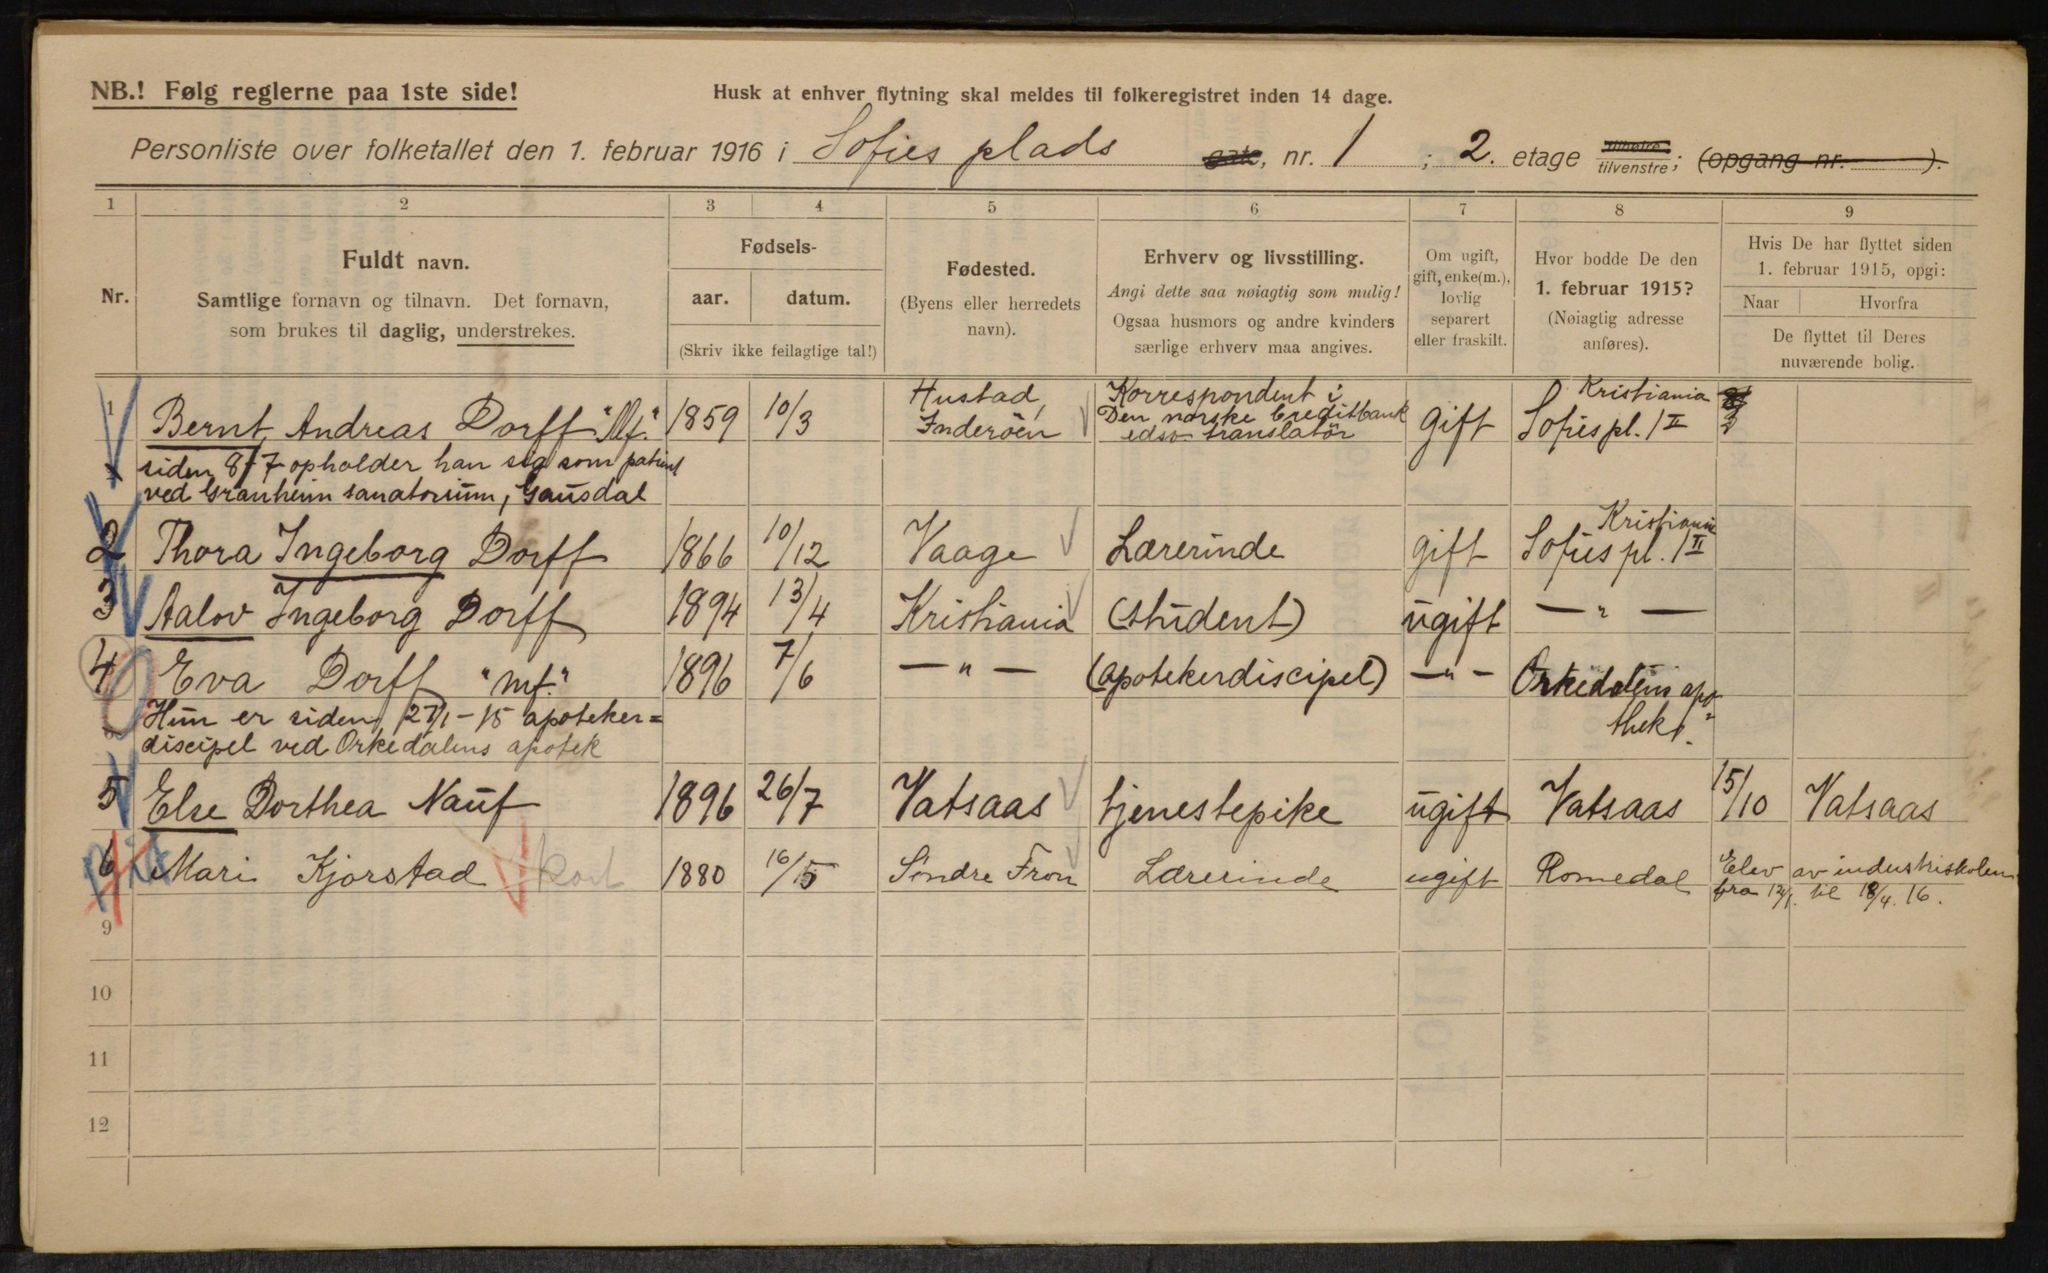 NB.! Følg reglerne paa 1ste side!
Husk at enhver flytning skal meldes til folkeregistret inden 14 dage.
Personliste over folketallet den 1. februar 1916 i Sofies plads gate, nr. 1 ; 2. etage tilhøire tilvenstre; (opgang nr. ).
1 2 3 4 5 6 7 8 9
Nr.
Fuldt navn.
Samtlige fornavn og tilnavn. Det fornavn,
som brukes til daglig, understrekes.
Fødsels-
aar. datum.
(Skriv ikke feilagtige tal!)
Fødested.
(Byens eller herredets
navn).
Erhverv og livsstilling.
Angi dette saa nøiagtig som mulig!
Ogsaa husmors og andre kvinders
særlige erhverv maa angives.
Om ugift,
gift, enke(m.),
lovlig
separert
eller fraskilt.
Hvor bodde De den
1. februar 1915?
(Nøiagtig adresse
anføres).
Hvis De har flyttet siden
1. februar 1915, opgi:
Naar Hvorfra
De flyttet til Deres
nuværende bolig.
1 Bernt Andreas Dorff "Mf." 1859 10/3 Hustad, Inderöen Korrespondent i Den norske Creditbank edsv. translatör gift Kristiania Sofies pl. 1 II
siden 8/7 opholder han sig som patient
ved Granheim sanatorium, Gausdal
2 Thora Ingeborg Dorff 1866 10/12 Vaage Lærerinde gift Kristiania Sofies pl. 1 II
3 Aalov Ingeborg Dorff 1894 13/4 Kristiania (student) ugift — " —
4 Eva Dorff "mf." 1896 7/6 — " — (apotekerdiscipel) — " — Orkedalens apo-
thek.
Hun er siden 27/1 - 15 apoteker=
discipel ved Orkedalens apotek
5 Else Dorthea Nauf 1896 26/7 Vatsaas tjenestepike ugift Vatsaas 15/10 Vatsaas
6 Mari Kjorstad kort 1880 16/5 Söndre Fron Lærerinde ugift Romedal Elev av industriskolen
fra 12/1. til 18/4. 16.
9
10
11
12